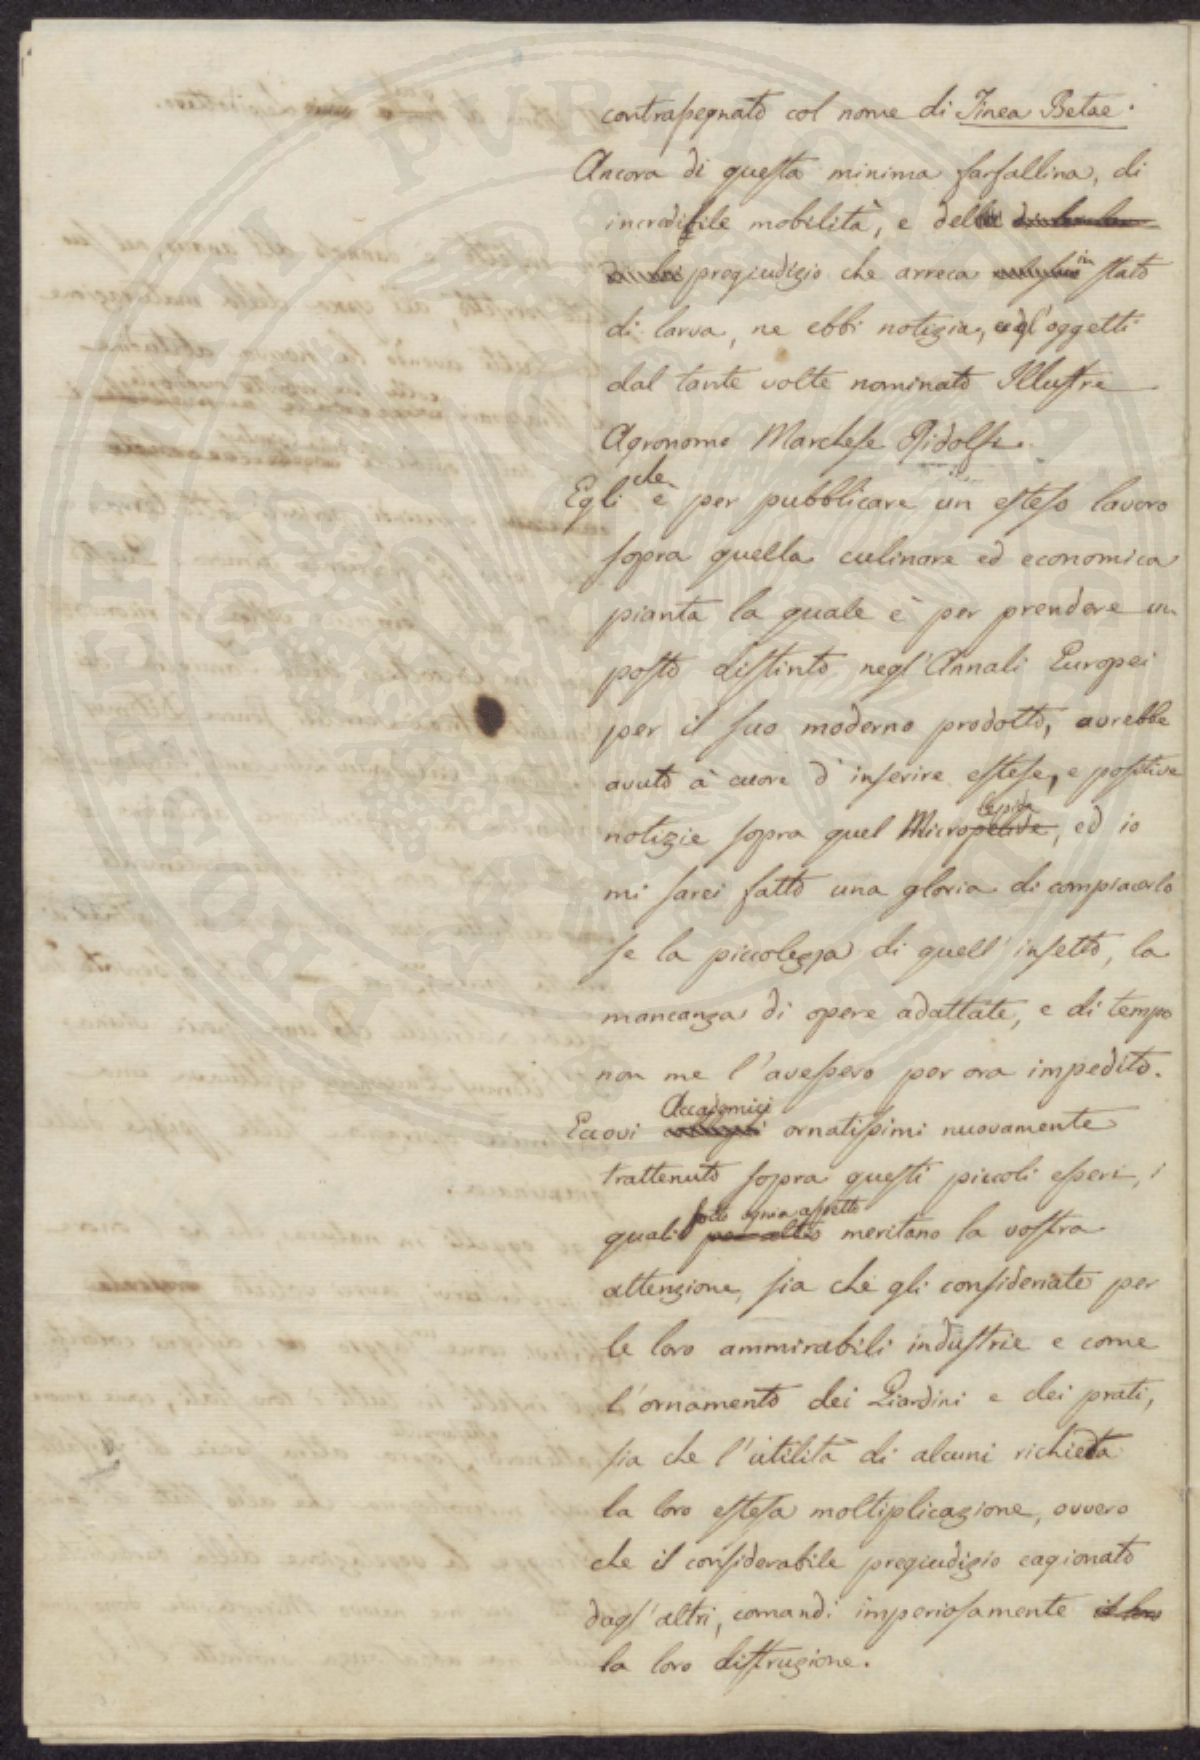 contrassegnato col nome di Tinea Betae.
Ancora di questa minima farfallina, di
incredibile mobilità, e del
pregiudizio che arreca in stato
di larva, ne ebbi notizia, e gl'oggetti
dal tante volte nominato Illustre
Agronomo Marchese Ridolfi.
Egli che è per pubblicare un esteso lavoro
sopra quella culinare ed economica
pianta la quale è per prendere un
posto distinto negl'Annali Europei
per il suo moderno prodotto, avrebbe
avuto à cuore d'inserire estese, e positive
notizie sopra quel Microlepida, ed io
mi sarei fatto una gloria di compiacerlo
se la piccolezza di quell'insetto, la
mancanza di opere adattate, e di tempo
non me l'avessero per ora impedito.
Eccovi Accademici ornatissimi nuovamente
trattenuto sopra questi piccoli esseri, i
quali sotto ogni aspetto meritano la vostra
attenzione, sia che gli consideriate per
le loro ammirabili industrie e come
l'ornamento dei Giardini e dei prati,
sia che l'utilità di alcuni richieda
la loro estesa moltiplicazione, ovvero
che il considerabile pregiudizio cagionato
dagl'altri, comandi imperiosamente il loro
la loro distruzione.